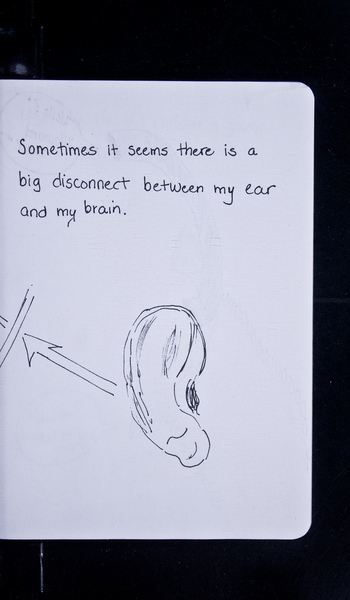 Sometimes it seems there is a
big disconnect between my ear
and my brain.